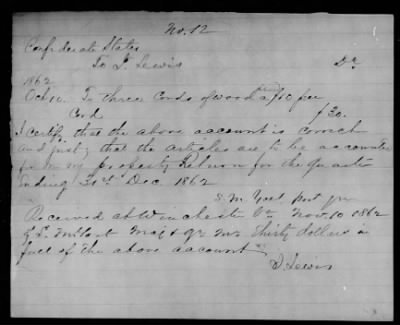 No. 12
Confederate States
To J. Lewis Dr
1862
Oct 10. To three Cords of wood @ $10 per
Cord $30.
I certify that the above account is correct
and just; that the articles are to be accounted
for on my property Return for the quarter
ending 31st Dec. 1862
S. M.
Received at Winchester Va Nov. 10 1862
of Maj & Qr Mr thirty dollars in
full of the above account
J. Lewis